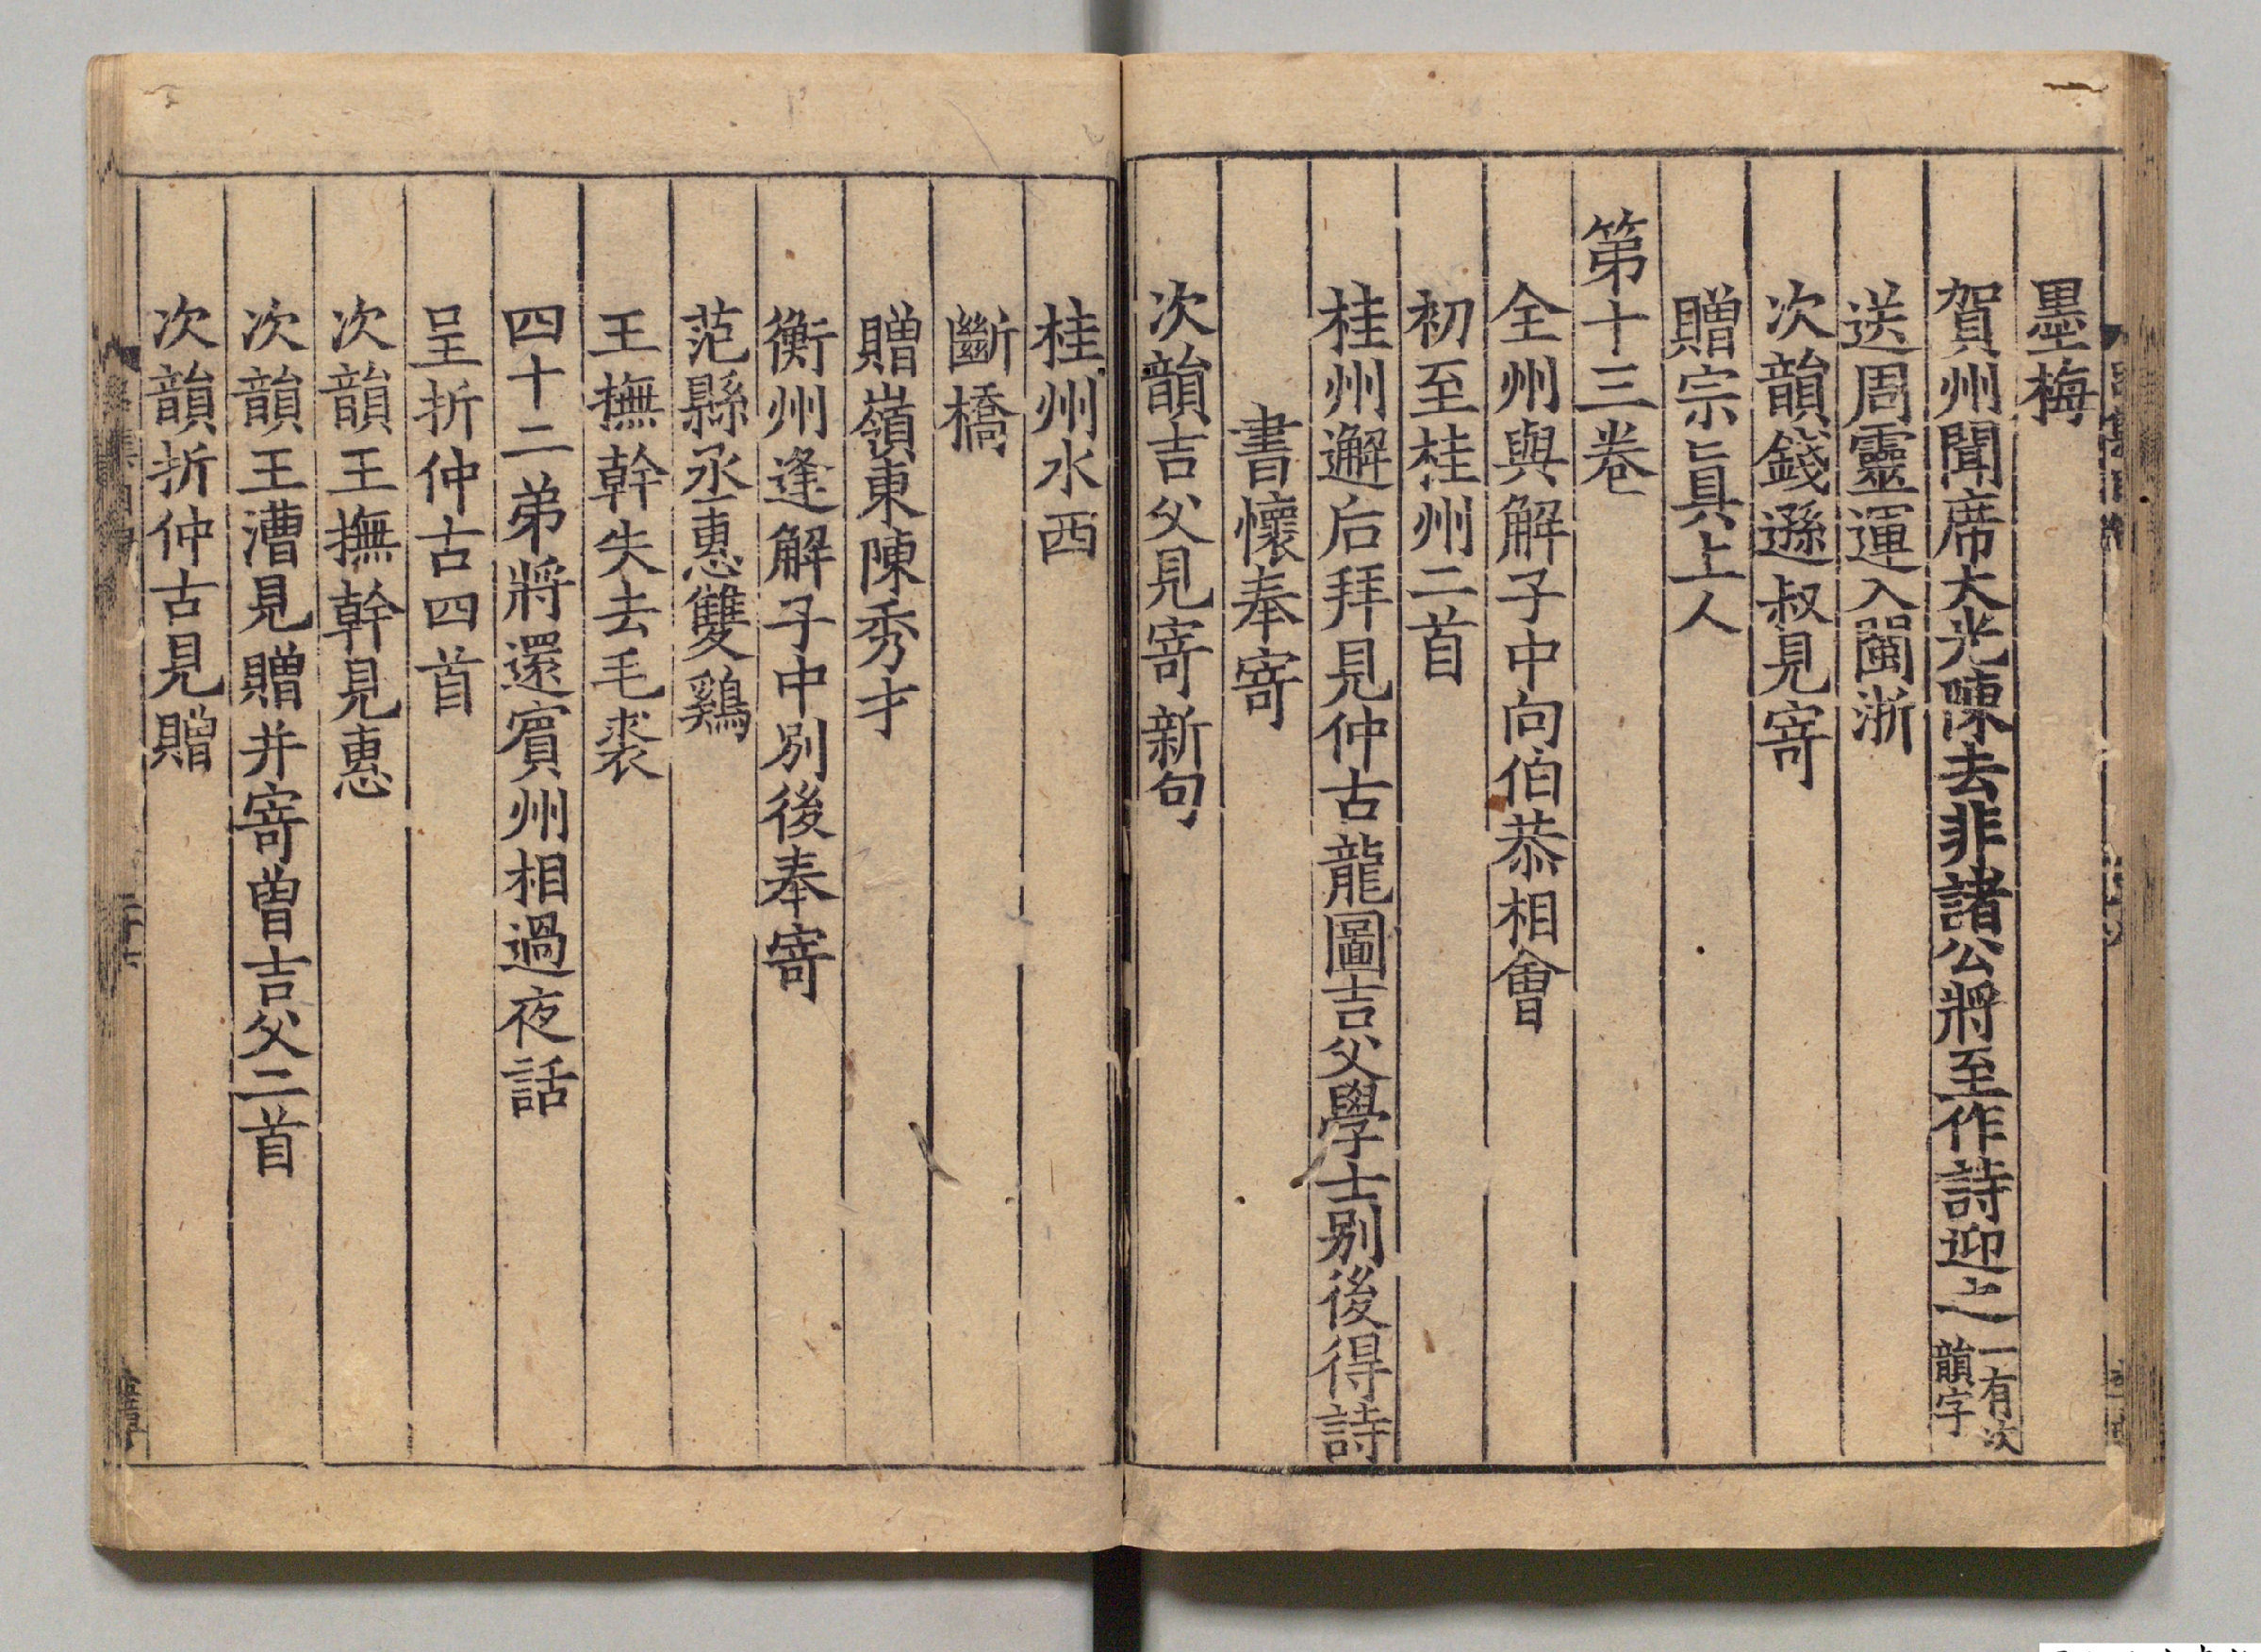 墨梅
賀州聞席大光陳去非諸公將至作詩迎之一有次韻字
送周靈運入閩浙
次韻錢遜叔見寄
贈宗眞上人
第十三卷
全州與解子中向伯恭相會
初至桂州二首
桂州邂后拜見仲古龍圖吉父學士别後得詩
書懷奉寄
次韻吉父見寄新句
桂州水西
斷橋
贈嶺東陳秀才
衡州逢解子中别後奉寄
范縣丞惠雙鷄
王撫幹失去毛裘
四十二弟將還賓州相過夜話
呈折仲古四首
次韻王撫幹見惠
次韻王漕見贈并寄曾吉父二首
次韻折仲古見贈